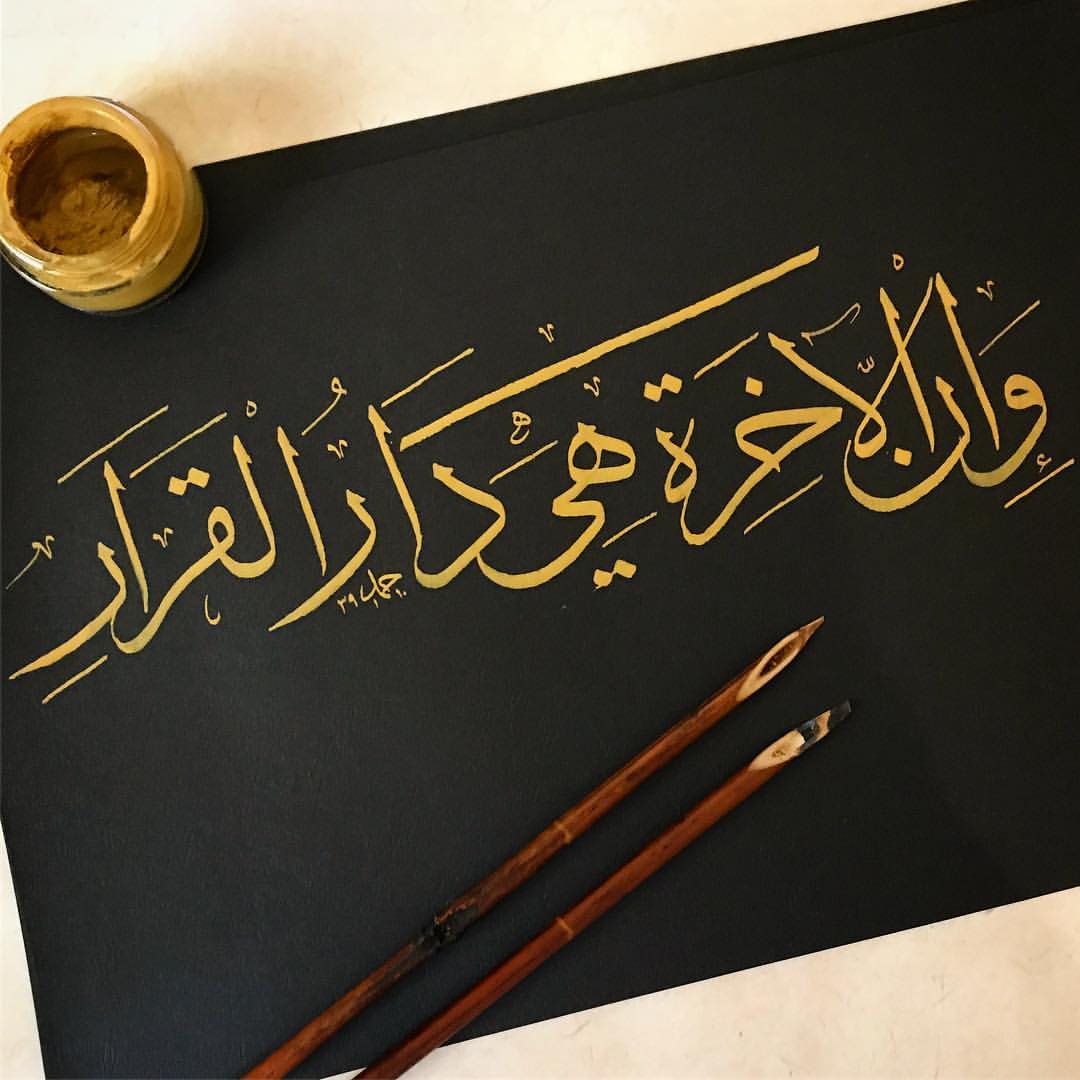 وَإِنَّ الْآخِرَةَ هِيَ دَارُ الْقَرَارِ